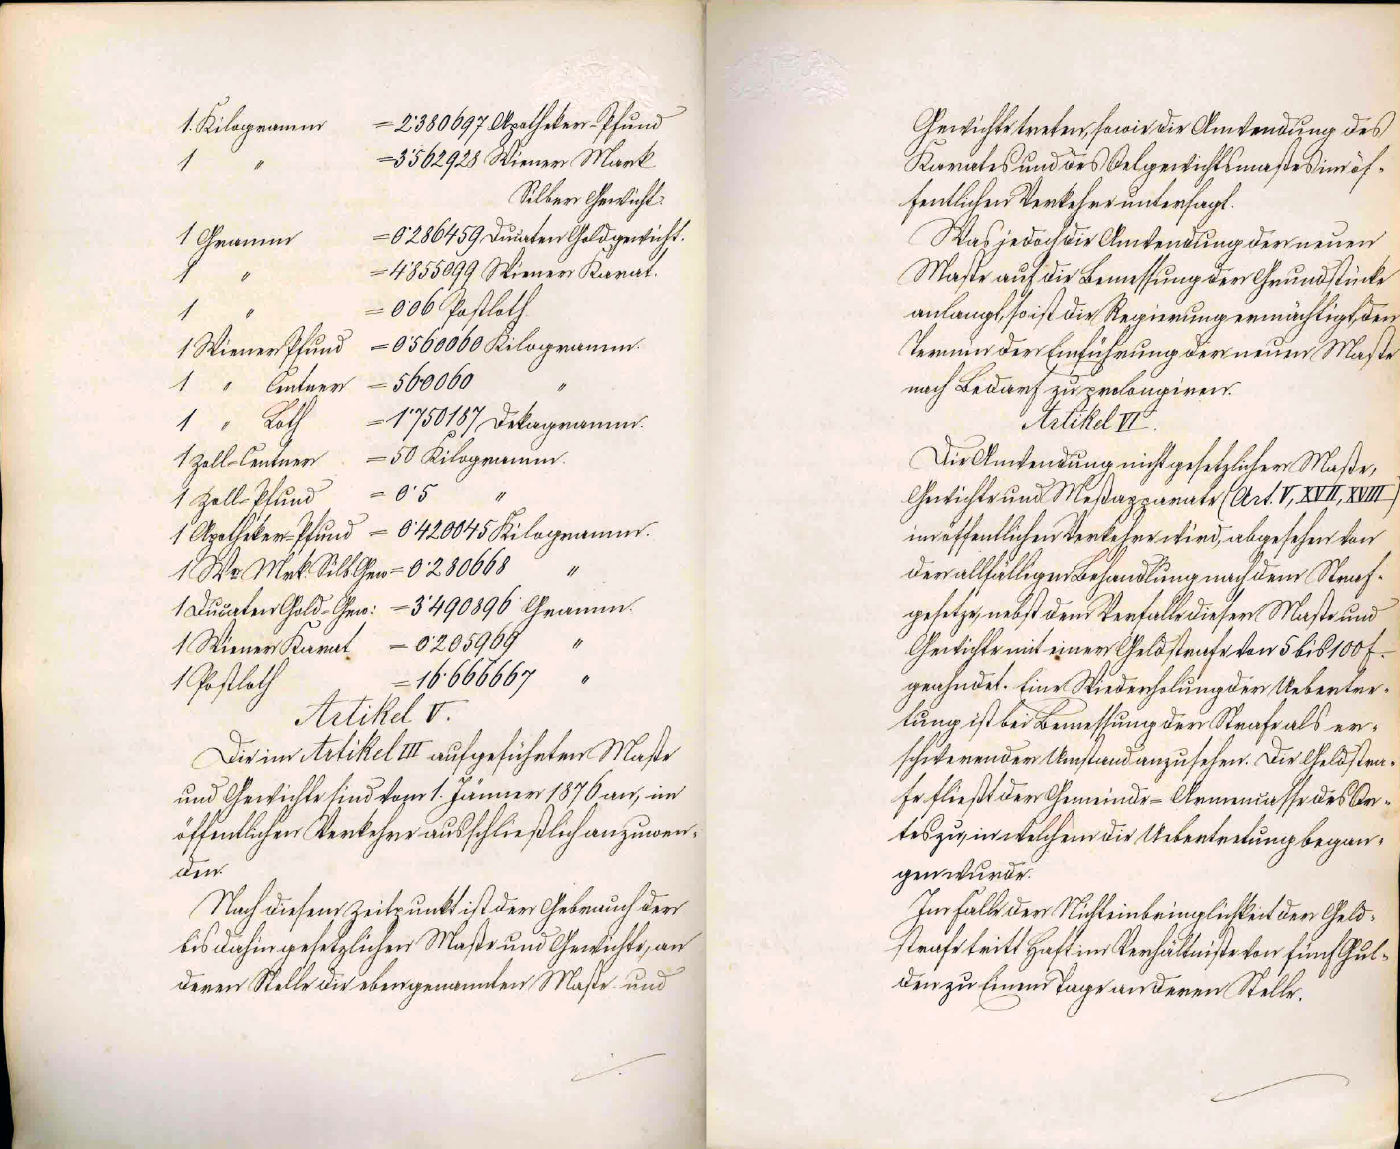 1 Kilogramm = 2·380697 Apotheker-Pfund
1 " = 3·562928 Wiener Mark
Silber Gewicht.
1 Gramm = 0·286459 Ducaten Goldgewicht.
1 " = 4·855099 Wiener Karat.
1 " = 0·06 Postloth.
1 Wiener Pfund = 0·560060 Kilogramm.
1 " Centner = 56·0060 "
1 " Loth = 1·750187 Dekagramm.
1 Zoll-Centner = 50 Kilogramm.
1 Zoll-Pfund = 0·5 "
1 Apotheker-Pfund = 0·420045 Kilogramm.
1 Wr. Mrk. Silb. Gew = 0·280668 "
1 Ducaten Gold-Gew: = 3·490896 Gramm.
1 Wiener Karat = 0·205969 "
1 Postloth = 16·666667 "
Artikel V.
Die im Artikel III aufgeführten Maße
und Gewichte sind vom 1. Jänner 1876 an, im
öffentlichen Verkehre ausschließlich anzuwen-
den.
Nach diesem Zeitpunkt ist der Gebrauch der
bis dahin gesetzlichen Maße und Gewichte, an
deren Stelle die ebengenannten Maße und
Gewichte treten, sowie die Anwendung des
Karates und des Oelgewichtsmaßes im öf-
fentlichen Verkehre untersagt.
Was jedoch die Anwendung der neuen
Maße auf die Bemessung der Grundstücke
anlangt, so ist die Regierung ermächtigt, den
Termin der Einführung der neuen Maße
nach Bedarf zu prolongiren.
Artikel VI.
Die Anwendung nicht gesetzlicher Maße,
Gewichte und Meßapparate (Art. V, XVII, XVIII)
im öffentlichen Verkehre wird, abgesehen von
der allfälligen Behandlung nach dem Straf-
gesetze, nebst dem Verfalle dieser Maße und
Gewichte mit einer Geldstrafe von 5 bis 100 f.
geahndet. Eine Wiederholung der Uebertre-
tung ist bei Bemessung der Strafe als er-
schwerender Umstand anzusehen. Die Geldstra-
fe fließt der Gemeinde-Armencasse des Or-
tes zu, in welchem die Uebertretung began-
gen wurde.
Im Falle der Nichteinbringlichkeit der Geld-
strafe tritt Haft im Verhältniße von fünf Gul-
den zu Einem Tage an deren Stelle.